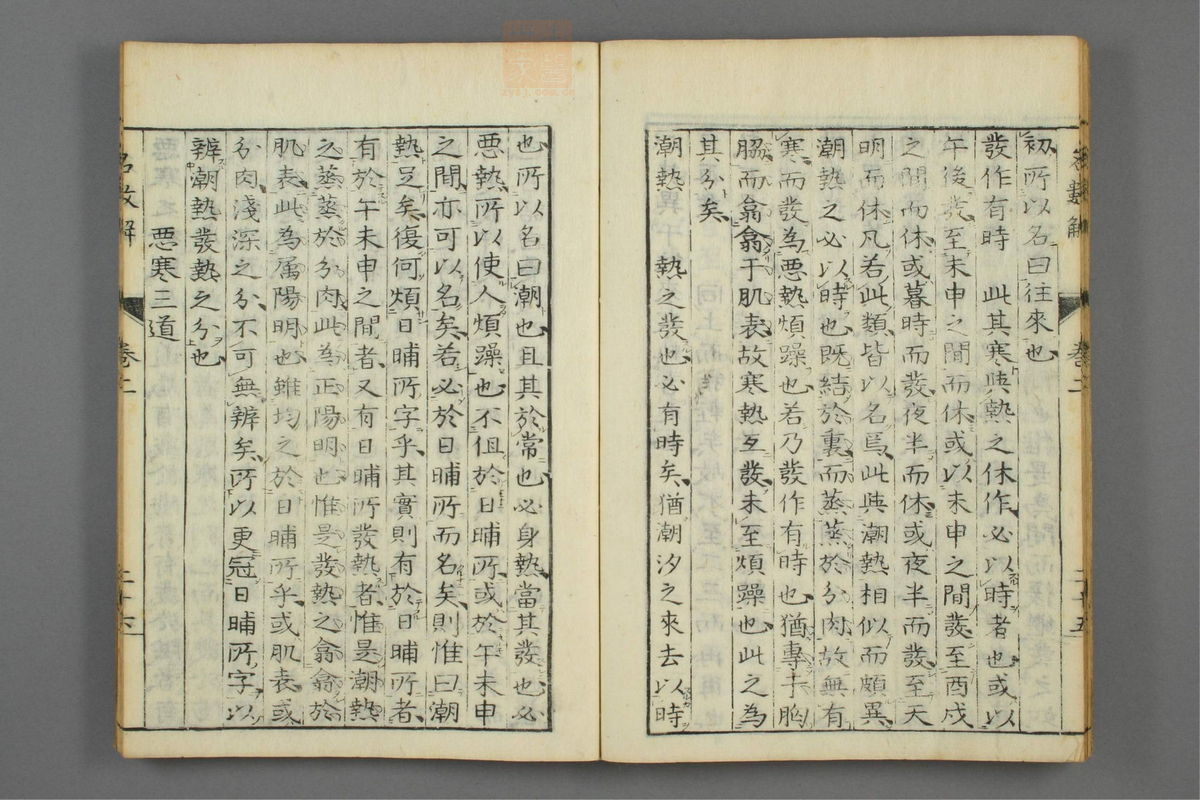 初所以名曰往來也
發作有時 此其寒與熱之休作必以時者也或以
午後發至未申之間而休或以未申之間發至酉戌
之間而休或暮時而發夜半而休或夜半而發至天
明而休凡若此類皆以名焉此與潮熱相似而頗異
潮熱之必以時也既結於裏而蒸蒸於分肉故無有
寒而發為惡熱煩躁也若乃發作有時也猶專于胸
脇而翕翕于肌表故寒熱互發未至煩躁也此之為
其分矣
潮熱 熱之發也必有時矣猶潮汐之來去以時
卷二
二十五
也所以名曰潮也且其於常也必身熱當其發也必
惡熱所以使人煩躁也不但於日晡所或於午未申
之間亦可以名矣若必於日晡所而名矣則惟曰潮
熱足矣復何煩日晡所字乎其實則有於日晡所者
有於午未申之間者又有日晡所發熱者惟是潮熱
之蒸蒸於分肉此為正陽明也惟是發熱之翕翕於
肌表此為属陽明也雖均之於日晡所乎或肌表或
分肉淺深之分不可無辨矣所以更冠日晡所字以
辨潮熱發熱之分也
惡寒三道
名數解
卷二
二十六
zysj.com.cn